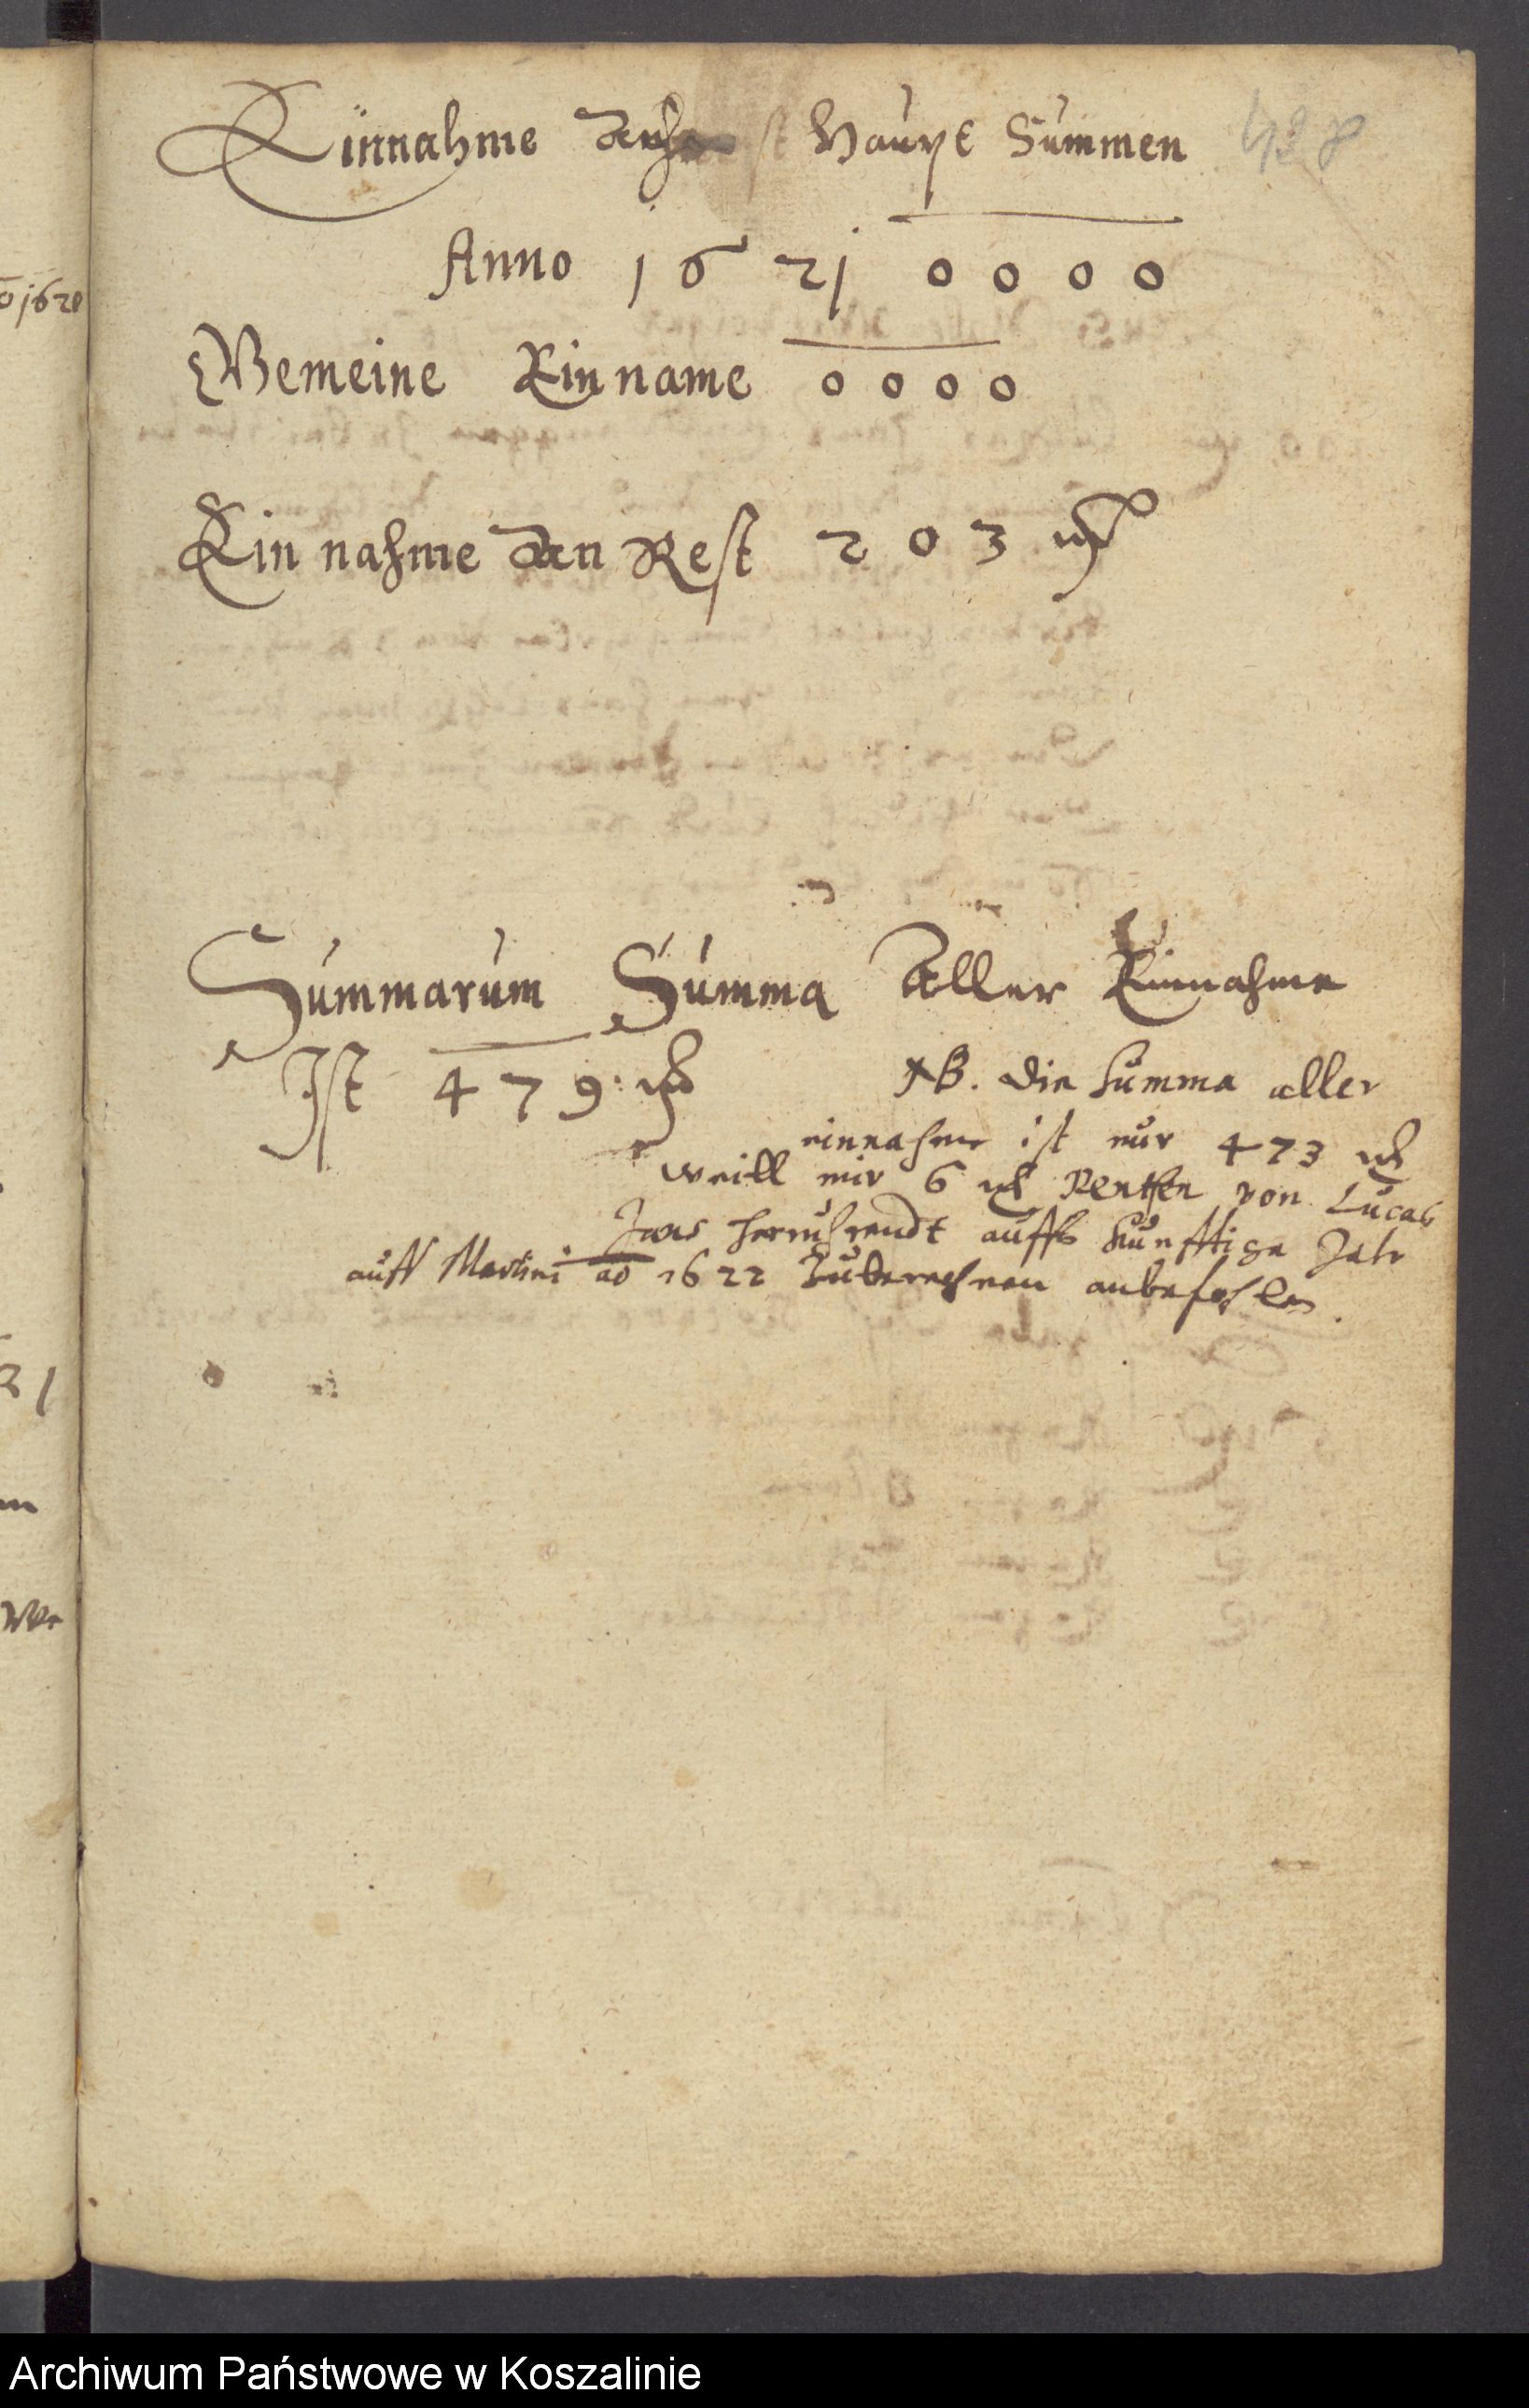 Einnahme der Haupt Summen
Anno 1621 0 0 0 0
Gemeine Einname 0 0 0 0
Einnahme den Rest 203 mk
Summarum Summa Aller Einnahme
Ist 479 mk
NB. Die Summa aller
einnahme ist nur 473 mk
weill mir 6 mk Renthen von Lucas
herruhrendt auffs Kunfftige Jahr
auff Martini ao 1622 Zuberechnen anbefohlen.
Archiwum Państwowe w Koszalinie